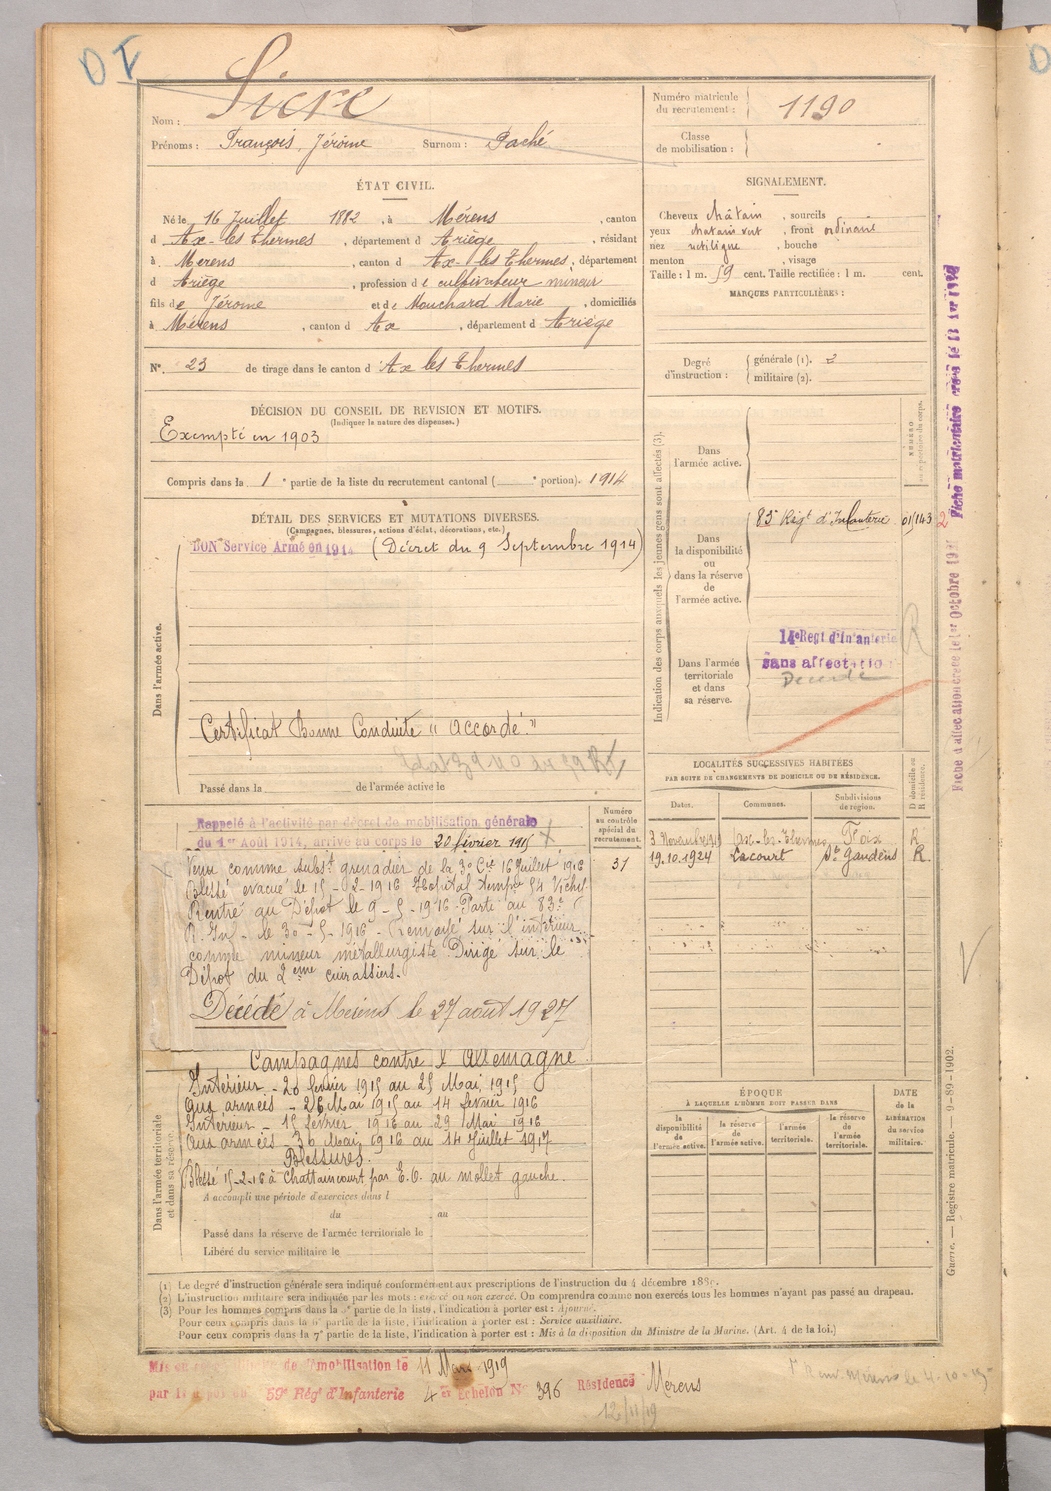 D I
Nom : Sicre
Prénoms : François, Jérôme Surnom : Paché
Numéro matricule du recrutement : 1190
Classe de mobilisation :
ÉTAT CIVIL.
Né le 16 Juillet 1882, à Mérens, canton
d Ax-les Thermes, département d Ariège, résidant
à Merens, canton d Ax-les Thermes, département
d Ariège, profession de cultivateur mineur
fils de Jérome et de Mouchard Marie, domiciliés
à Mérens, canton d Ax, département d Ariège
N° 23 de tirage dans le canton d Ax les Thermes
SIGNALEMENT.
Cheveux châtain, sourcils
yeux chatain vert, front ordinaire
nez rectiligne, bouche
menton, visage
Taille : 1 m. 59 cent. Taille rectifiée : 1 m. cent.
MARQUES PARTICULIÈRES :
Degré d'instruction : générale (1). 2
militaire (2).
DÉCISION DU CONSEIL DE REVISION ET MOTIFS.
(Indiquer la nature des dispenses.)
Exempté en 1903
Compris dans la 1e partie de la liste du recrutement cantonal ( e portion). 1914
DÉTAIL DES SERVICES ET MUTATIONS DIVERSES.
(Campagnes, blessures, actions d'éclat, décorations, etc.)
BON Service Armé en 1914 (Décret du 9 Septembre 1914)
Dans l'armée active.
Certificat Bonne Conduite "accordé"
Passé dans la de l'armée active le
Indication des corps auxquels les jeunes gens sont affectés (3).
Dans l'armée active.
NUMÉRO
Dans la disponibilité ou dans la réserve de l'armée active.
83e Régt d'Infanterie 01143
2
Dans l'armée territoriale et dans sa réserve.
14e Regt d'Infanterie
sans affectation
Décédé
R
LOCALITÉS SUCCESSIVES HABITÉES
PAR SUITE DE CHANGEMENTS DE DOMICILE OU DE RÉSIDENCE.
Dates. Communes. Subdivisions de région. D domicile ou R résidence.
3 Novembre 1919 Ax-les-Thermes Foix R
19.10.1924 Lacourt St Gaudens R
Numéro au contrôle spécial du recrutement.
31
Rappelé à l'activité par décret de mobilisation générale
du 1er Août 1914, arrivé au corps le 20 février 1915
Venu comme subst grenadier de la 3e Cie 16 Juillet 1916
Blessé évacué le 15-2-1916 Hôpital tempre 54 Vichy
Rentré au Dépôt le 9-5-1916 Parti au 83e
R. Inf. le 30-5-1916 - Renvoyé sur l'intérieur
comme mineur métallurgiste Dirigé sur le
Dépot du 2ème cuirassiers.
Décédé à Mérens le 27 août 1927
Campagnes contre l'Allemagne
Intérieur - 20 février 1915 au 25 Mai 1915
Aux armées - 26 Mai 1915 au 14 février 1916
Intérieur - 15 février 1916 au 29 Mai 1916
Aux armées - 30 Mai 1916 au 14 Juillet 1917
Blessures.
Blessé 15-2-16 à Chattancourt par E.O. au mollet gauche.
Dans l'armée territoriale et dans sa réserve.
A accompli une période d'exercices dans l
du au
Passé dans la réserve de l'armée territoriale le
Libéré du service militaire le
ÉPOQUE
À LAQUELLE L'HOMME DOIT PASSER DANS
la disponibilité de l'armée active. la réserve de l'armée active. l'armée territoriale. la réserve de l'armée territoriale.
DATE de la LIBÉRATION du service militaire.
(1) Le degré d'instruction générale sera indiqué conformément aux prescriptions de l'instruction du 4 décembre 1889.
(2) L'instruction militaire sera indiquée par les mots : exercé ou non exercé. On comprendra comme non exercés tous les hommes n'ayant pas passé au drapeau.
(3) Pour les hommes compris dans la 5e partie de la liste, l'indication à porter est : Ajourné.
Pour ceux compris dans la 6e partie de la liste, l'indication à porter est : Service auxiliaire.
Pour ceux compris dans la 7e partie de la liste, l'indication à porter est : Mis à la disposition du Ministre de la Marine. (Art. 4 de la loi.)
Guerre. — Registre matricule. — 9-89-1902.
Fiche d'affectation créée le 1er Octobre 1921
Fiche matriculaire créée le
Mis en démobilisation le 11 Mars 1919
par le dépot du 59e Régt d'Infanterie 4er Echelon N° 396 Résidence Mérens
12/11/19